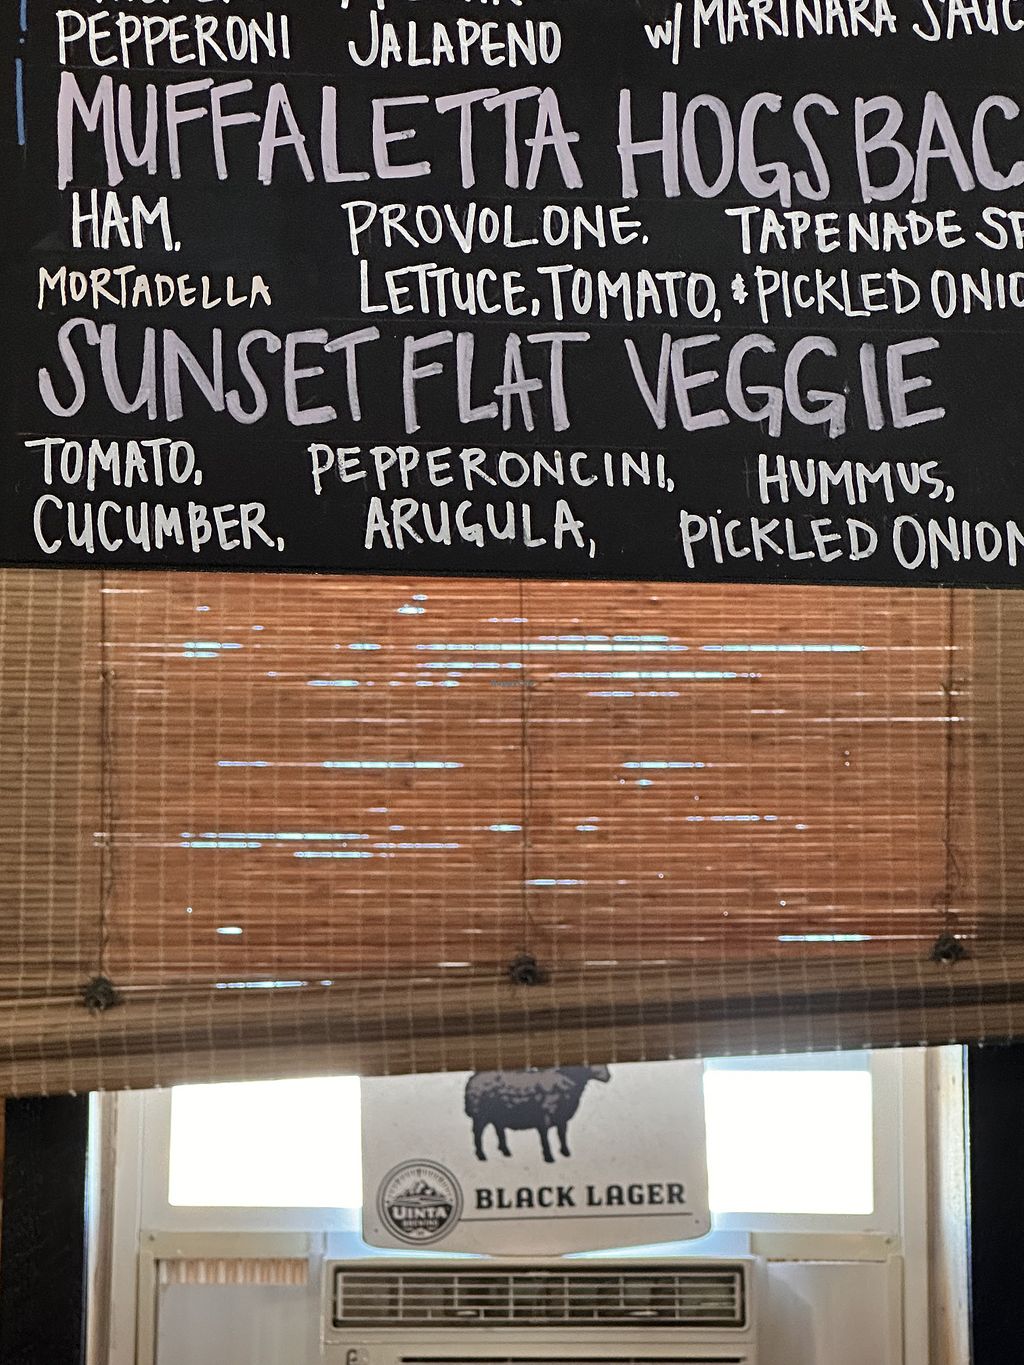 PEPPERONI JALAPENO W/ MARINARA SAUC
MUFFALETTA HOGSBAC
HAM, PROVOLONE. TAPENADE SP
MORTADELLA LETTUCE, TOMATO, & PICKLED ONIO
SUNSET FLAT VEGGIE
TOMATO, PEPPERONCINI, HUMMUS,
CUCUMBER, ARUGULA, PICKLED ONION
UINTA
BREWING
BLACK LAGER